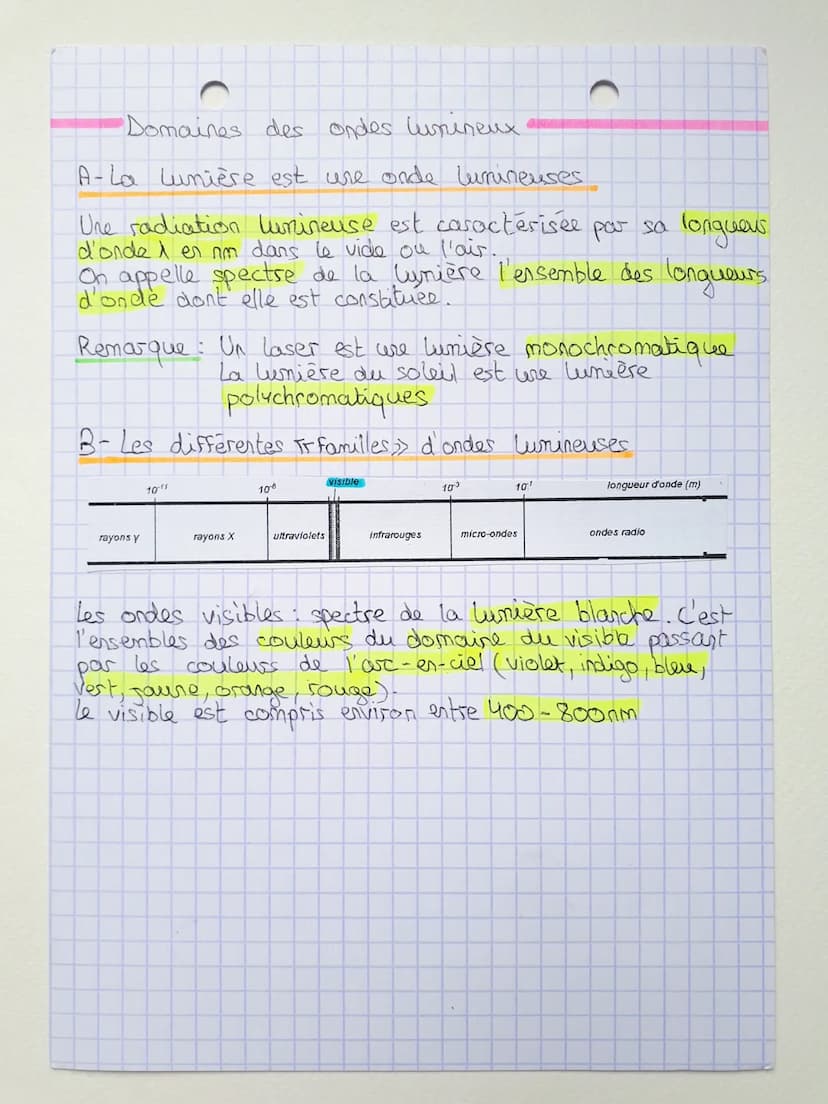 Domaines des ondes lumineux
A-La lumière est une onde lumineuses
Une radiation lumineuse est caractérisée par sa longueurs
d'onde λ en nm dans le vide ou l'air.
On appelle spectre de la lumière l'ensemble des longueurs
d'onde dont elle est constituée.
Remarque : Un laser est une lumière monochromatique
La lumière du soleil est une lumière
polychromatiques
B-Les différentes «familles» d'ondes lumineuses
10⁻¹¹ 10⁻⁸ visible 10⁻³ 10⁻¹ longueur d'onde (m)
rayons γ rayons X ultraviolets infrarouges micro-ondes ondes radio
Les ondes visibles : spectre de la lumière blanche. C'est
l'ensembles des couleurs du domaine du visible passant
par les couleurs de l'arc-en-ciel (violet, indigo, bleu,
vert, jaune, orange, rouge).
Le visible est compris environ entre 400-800nm